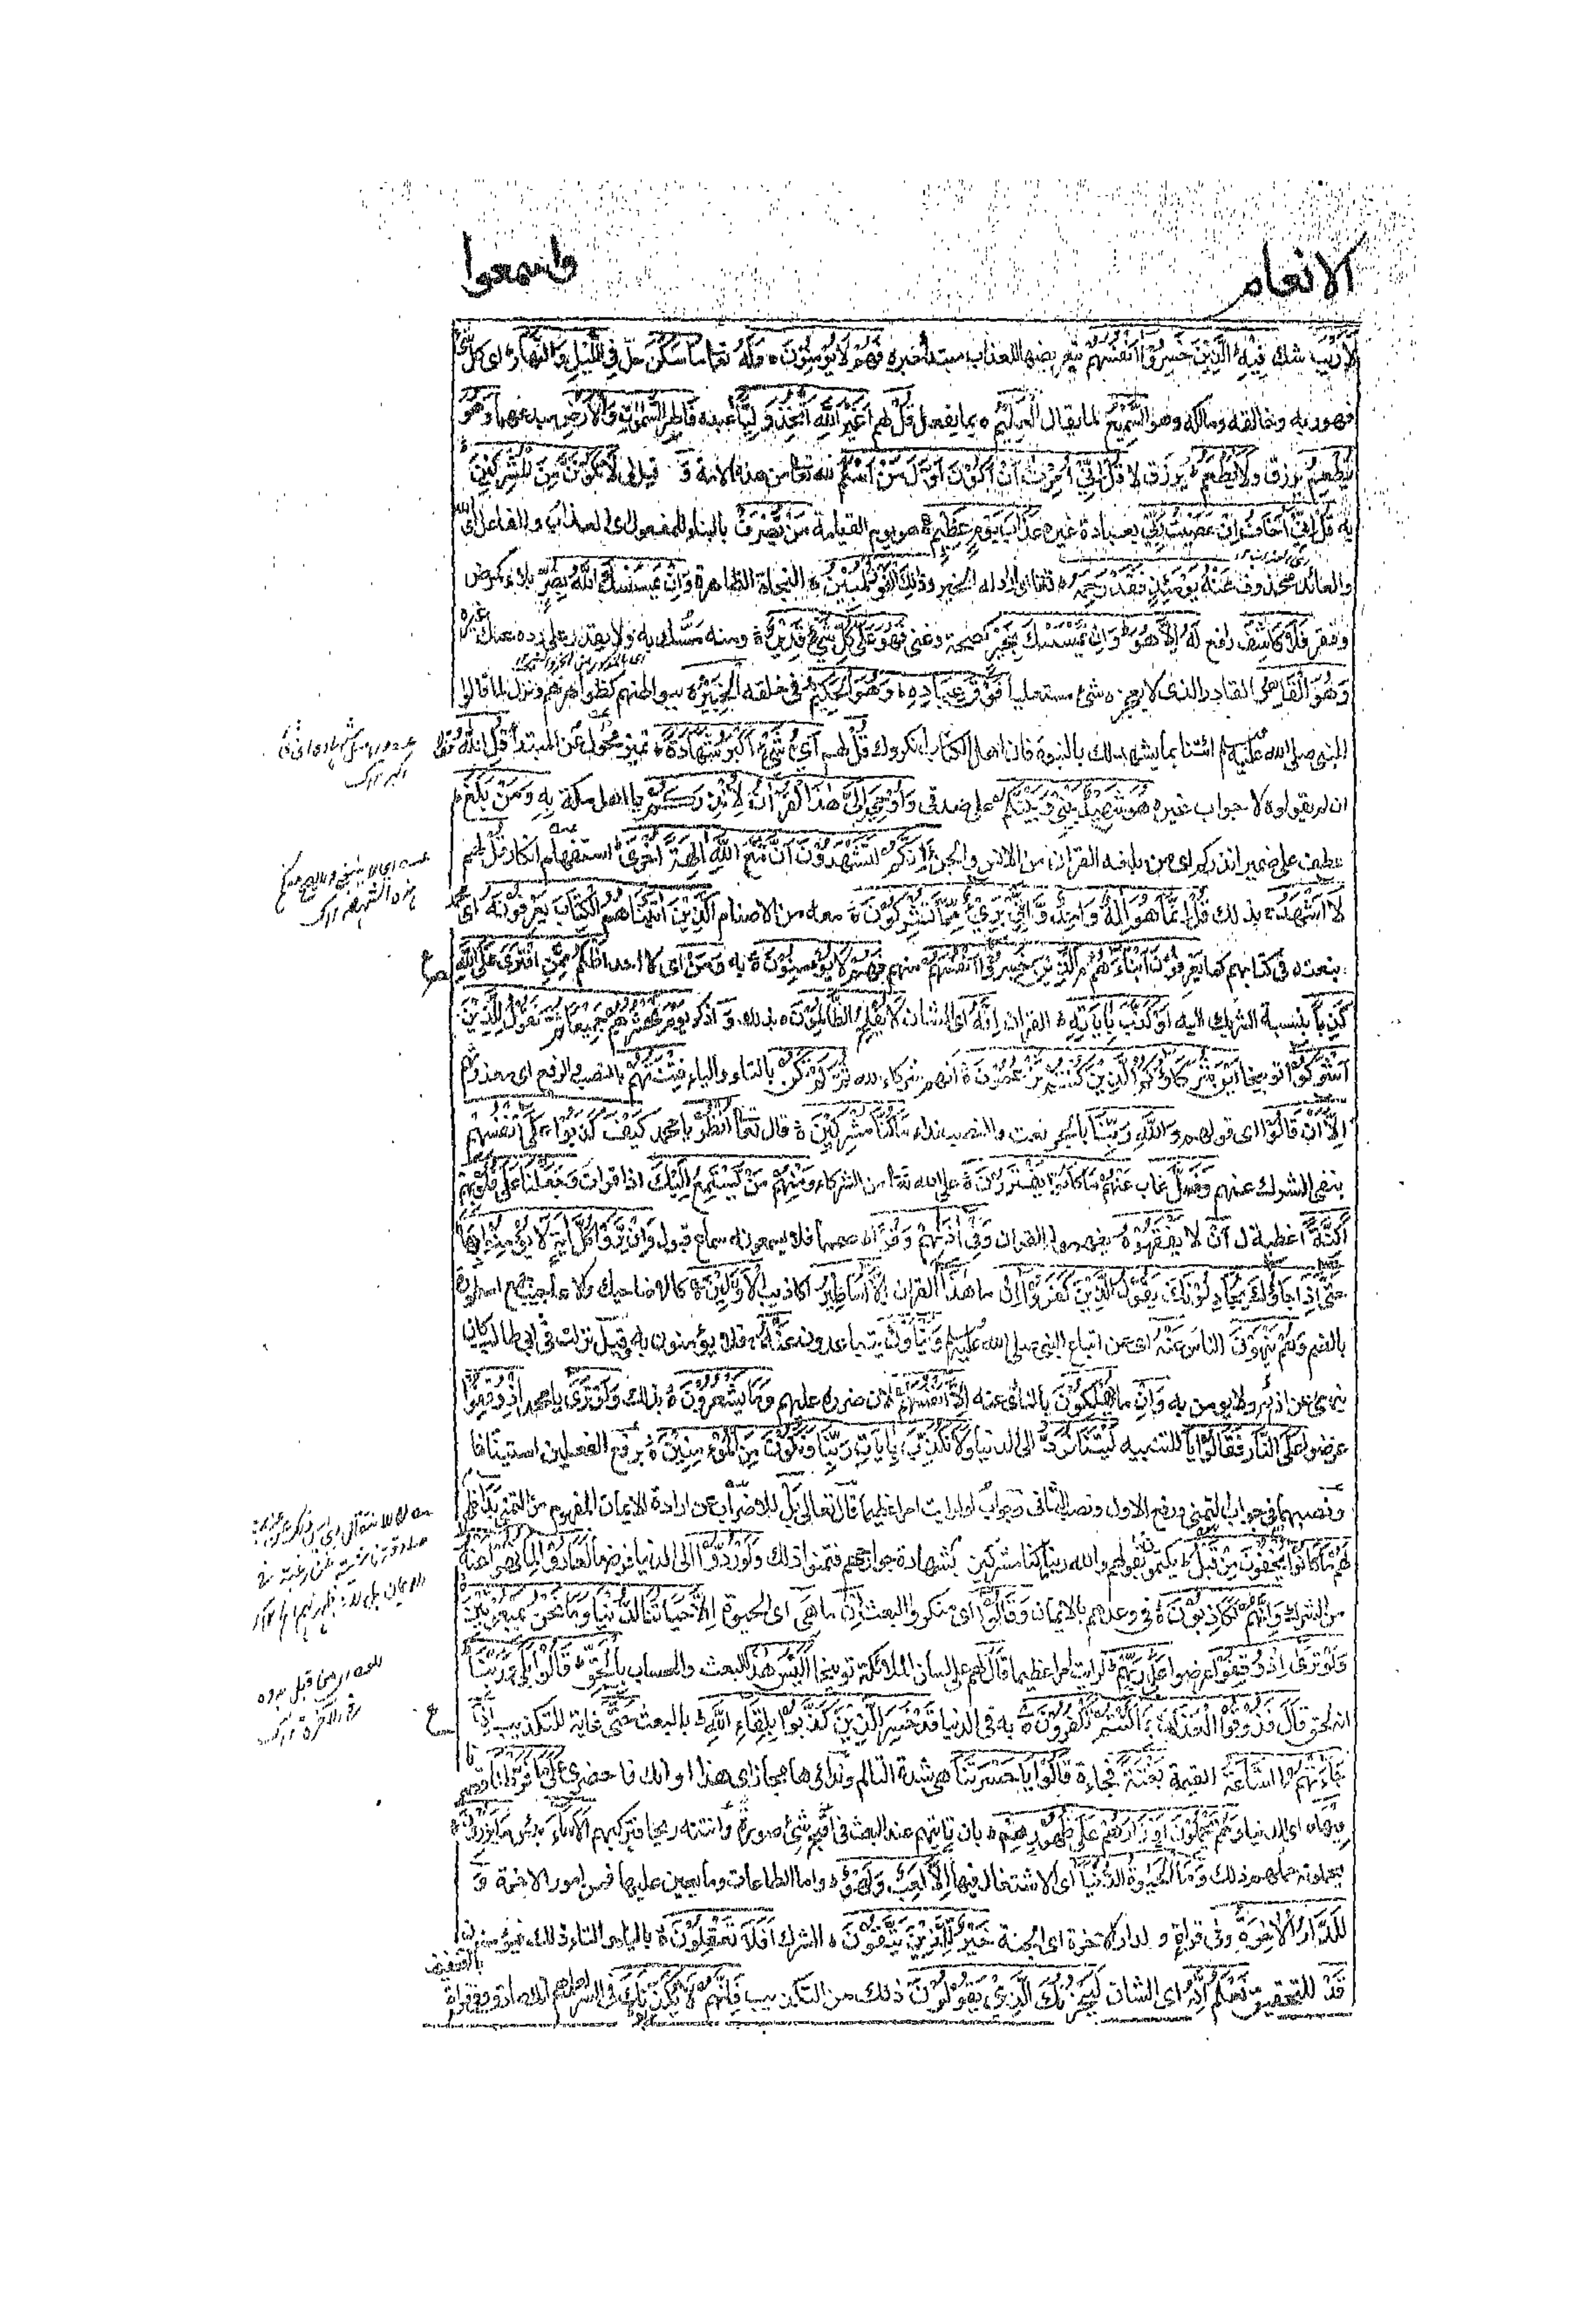 الانعام
واسمعوا
لَارَيْبَ شك فِيْهِ اَلَّذِيْنَ خَسِرُوْٓا اَنْفُسَهُمْ بتعريضها للعذاب مبتدأ خبره فَهُمْ لَا يُؤْمِنُوْنَ ه وَلَهٗ تعالى مَا سَكَنَ حل فِي الَّيْلِ وَالنَّهَارِ اى كل شئ
فهو ربه وخالقه ومالكه وهو السَّمِيْعُ لما يقال الْعَلِيْمُ ه بما يفعل قُلْ لهم اَغَيْرَ اللّٰهِ اَتَّخِذُ وَلِيًّا اعبده فَاطِرِ السَّمٰوٰتِ وَالْاَرْضِ مبدعهما وَهُوَ
يُطْعِمُ يرزق وَلَا يُطْعَمُ يرزق لا قُلْ اِنِّيْٓ اُمِرْتُ اَنْ اَكُوْنَ اَوَّلَ مَنْ اَسْلَمَ لله تعالى من هذه الامة وَ قيل لى لَا تَكُوْنَنَّ مِنَ الْمُشْرِكِيْنَ
به قُلْ اِنِّيْٓ اَخَافُ اِنْ عَصَيْتُ رَبِّيْ بعبادة غيره عَذَابَ يَوْمٍ عَظِيْمٍ ه هو يوم القيامة مَنْ يُّصْرَفْ بالبناء للمفعول اى العذاب وللفاعل اى الله
والعائد محذوف عَنْهُ يَوْمَئِذٍ فَقَدْ رَحِمَهٗ تعالى اى اراد له الخير وَذٰلِكَ الْفَوْزُ الْمُبِيْنُ ه النجاة الظاهرة وَاِنْ يَّمْسَسْكَ اللّٰهُ بِضُرٍّ بلاء كمرض
وفقر فَلَا كَاشِفَ رافع لَهٗٓ اِلَّا هُوَ وَاِنْ يَّمْسَسْكَ بِخَيْرٍ كصحة وغنى فَهُوَ عَلٰى كُلِّ شَيْءٍ قَدِيْرٌ ه ومنه مسك به ولا يقدر على رده عنك غيره
وَهُوَ الْقَاهِرُ القادر الذى لا يعجزه شئ مستعليا فَوْقَ عِبَادِهٖ وَهُوَ الْحَكِيْمُ فى خلقه الْخَبِيْرُ ه ببواطنهم كظواهرهم ونزل لما قالوا
للنبى صلى الله عليه وسلم ائتنا بما يشهد لك بالنبوة فان اهل الكتاب انكروك قُلْ لهم اَيُّ شَيْءٍ اَكْبَرُ شَهَادَةً تميز محول عن المبتدأ قُلِ اللّٰهُ
ان لم يقولوه لا جواب غيره هو شَهِيْدٌ بَيْنِيْ وَبَيْنَكُمْ على صدقى وَاُوْحِيَ اِلَيَّ هٰذَا الْقُرْاٰنُ لِاُنْذِرَكُمْ يا اهل مكة بِهٖ وَمَنْ بَلَغَ
عطف على ضمير انذركم اى من بلغه القران من الانس والجن اَئِنَّكُمْ لَتَشْهَدُوْنَ اَنَّ مَعَ اللّٰهِ اٰلِهَةً اُخْرٰى استفهام انكار قُلْ لهم
لَا اَشْهَدُ بذلك قُلْ اِنَّمَا هُوَ اِلٰهٌ وَّاحِدٌ وَّاِنَّنِيْ بَرِيْءٌ مِّمَّا تُشْرِكُوْنَ ه معه من الاصنام اَلَّذِيْنَ اٰتَيْنٰهُمُ الْكِتٰبَ يَعْرِفُوْنَهٗ اى محمد
بنعته فى كتابهم كَمَا يَعْرِفُوْنَ اَبْنَآءَهُمْ اَلَّذِيْنَ خَسِرُوْٓا اَنْفُسَهُمْ منهم فَهُمْ لَا يُؤْمِنُوْنَ ه به وَمَنْ اى لا احد اَظْلَمُ مِمَّنِ افْتَرٰى عَلَى اللّٰهِ
كَذِبًا بنسبة الشريك اليه اَوْ كَذَّبَ بِاٰيَاتِهٖ القران اِنَّهٗ اى الشان لَا يُفْلِحُ الظَّالِمُوْنَ ه بذلك وَ اذكر يَوْمَ نَحْشُرُهُمْ جَمِيْعًا ثُمَّ نَقُوْلُ لِلَّذِيْنَ
اَشْرَكُوْٓا توبيخا اَيْنَ شُرَكَآؤُكُمُ الَّذِيْنَ كُنْتُمْ تَزْعُمُوْنَ ه انهم شركاء لله ثُمَّ لَمْ تَكُنْ بالتاء والياء فِتْنَتُهُمْ بالنصب والرفع اى معذرتهم
اِلَّآ اَنْ قَالُوْا اى قولهم وَاللّٰهِ رَبِّنَا بالجر نعت والنصب نداء مَا كُنَّا مُشْرِكِيْنَ ه قال تعالى اُنْظُرْ يا محمد كَيْفَ كَذَبُوْا عَلٰٓى اَنْفُسِهِمْ
بنفى الشرك عنهم وَضَلَّ غاب عَنْهُمْ مَّا كَانُوْا يَفْتَرُوْنَ ه على الله تعالى من الشركاء وَمِنْهُمْ مَّنْ يَّسْتَمِعُ اِلَيْكَ اذا قرات وَجَعَلْنَا عَلٰى قُلُوْبِهِمْ
اَكِنَّةً اغطية ل اَنْ لا يَفْقَهُوْهُ يفهموا القران وَفِيْٓ اٰذَانِهِمْ وَقْرًا صمما فلا يسمعونه سماع قبول وَاِنْ يَّرَوْا كُلَّ اٰيَةٍ لَّا يُؤْمِنُوْا بِهَا
حَتّٰٓى اِذَا جَآءُوْكَ يُجَادِلُوْنَكَ يَقُوْلُ الَّذِيْنَ كَفَرُوْٓا اِنْ ما هٰذَآ القران اِلَّآ اَسَاطِيْرُ اكاذيب الْاَوَّلِيْنَ ه كالاضاحيك والاعاجيب جمع اسطورة
بالضم وَهُمْ يَنْهَوْنَ الناس عَنْهُ اى عن اتباع النبى صلى الله عليه وسلم وَيَنْاَوْنَ يتباعدون عَنْهُ فلا يؤمنون به وقيل نزلت فى ابى طالب كان
ينهى عن اذاه ولا يومن به وَاِنْ ما يُّهْلِكُوْنَ بالنأى عنه اِلَّآ اَنْفُسَهُمْ لان ضرره عليهم وَمَا يَشْعُرُوْنَ ه بذلك وَلَوْ تَرٰٓى يا محمد اِذْ وُقِفُوْا
عرضوا عَلَى النَّارِ فَقَالُوْا يَا للتنبيه لَيْتَنَا نُرَدُّ الى الدنيا وَلَا نُكَذِّبُ بِاٰيَاتِ رَبِّنَا وَنَكُوْنُ مِنَ الْمُؤْمِنِيْنَ ه برفع الفعلين استينافا
ونصبهما فى جواب التمنى ورفع الاول ونصب الثانى وجواب لو لرايت امرا عظيما قال تعالى بَلْ للاضراب عن ارادة الايمان المفهوم من التمنى بَدَا ظهر
لَهُمْ مَّا كَانُوْا يُخْفُوْنَ مِنْ قَبْلُ يكتمون بقولهم والله ربنا ما كنا مشركين بشهادة جوارحهم فتمنوا ذلك وَلَوْ رُدُّوْا الى الدنيا فرضا لَعَادُوْا لِمَا نُهُوْا عَنْهُ
من الشرك وَاِنَّهُمْ لَكَاذِبُوْنَ ه فى وعدهم بالايمان وَقَالُوْا اى منكرو البعث اِنْ ما هِيَ اى الحيوة اِلَّا حَيَاتُنَا الدُّنْيَا وَمَا نَحْنُ بِمَبْعُوْثِيْنَ
وَلَوْ تَرٰٓى اِذْ وُقِفُوْا عرضوا عَلٰى رَبِّهِمْ لرايت امرا عظيما قَالَ لهم على لسان الملائكة توبيخا اَلَيْسَ هٰذَا البعث والحساب بِالْحَقِّ قَالُوْا بَلٰى وَرَبِّنَا
انه لحق قَالَ فَذُوْقُوا الْعَذَابَ بِمَا كُنْتُمْ تَكْفُرُوْنَ ه به فى الدنيا قَدْ خَسِرَ الَّذِيْنَ كَذَّبُوْا بِلِقَآءِ اللّٰهِ بالبعث حَتّٰٓى غاية للتكذيب اِذَا
جَآءَتْهُمُ السَّاعَةُ القيمة بَغْتَةً فجاءة قَالُوْا يَا حَسْرَتَنَا هى شدة التالم ونداؤها مجاز اى هذا اوانك فاحضرى عَلٰى مَا فَرَّطْنَا قصرنا
فِيْهَا اى الدنيا وَهُمْ يَحْمِلُوْنَ اَوْزَارَهُمْ عَلٰى ظُهُوْرِهِمْ بان تاتيهم عند البعث فى اقبح شئ صورة وانتنه ريحا فتركبهم اَلَا سَآءَ بئس مَا يَزِرُوْنَ
يحملونه حملهم ذلك وَمَا الْحَيٰوةُ الدُّنْيَآ اى الاشتغال فيها اِلَّا لَعِبٌ وَّلَهْوٌ واما الطاعات وما يعين عليها فمن امور الاخرة وَ
لَلدَّارُ الْاٰخِرَةُ وفى قراءة ولدار الاخرة اى الجنة خَيْرٌ لِّلَّذِيْنَ يَتَّقُوْنَ ه الشرك اَفَلَا تَعْقِلُوْنَ ه بالياء والتاء ذلك فيؤمنون
قَدْ للتحقيق نَعْلَمُ اِنَّهٗ اى الشان لَيَحْزُنُكَ الَّذِيْ يَقُوْلُوْنَ ذلك من التكذيب فَاِنَّهُمْ لَا يُكَذِّبُوْنَكَ فى السر لعلمهم انك صادق وفى قراءة
بالتخفيف